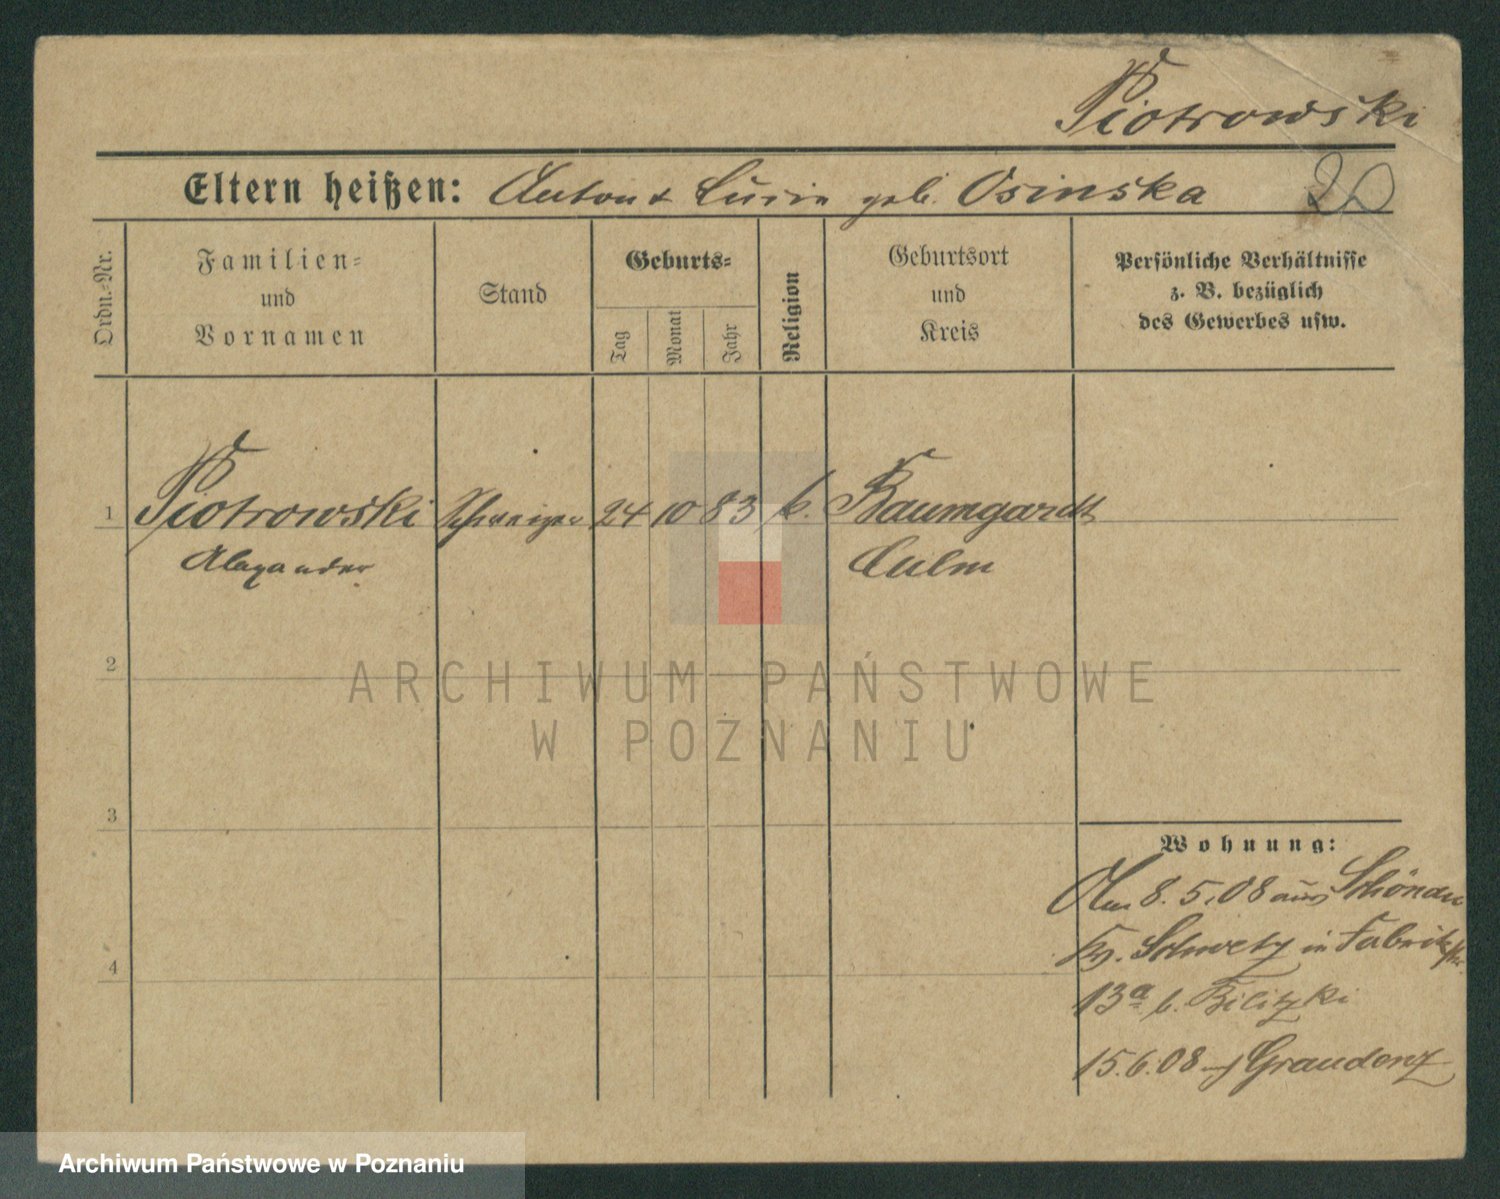 Piotrowski
Eltern heißen: Anton & Lucia geb. Osinska
20
Ordn.-Nr.
Familien-
und
Vornamen
Stand
Geburts-
Tag
Monat
Jahr
Religion
Geburtsort
und
Kreis
Persönliche Verhältnisse
z. B. bezüglich
des Gewerbes usw.
1 Piotrowski Schweizer 24 10 83 k. Baumgardt
Alexander Culm
2
ARCHIWUM PAŃSTWOWE
W POZNANIU
3
Wohnung:
Am 8.5.08 aus Schönau
Kr. Schwetz in Fabrikstr.
13a b. Bilitzki
4
15.6.08 Graudenz
Archiwum Państwowe w Poznaniu